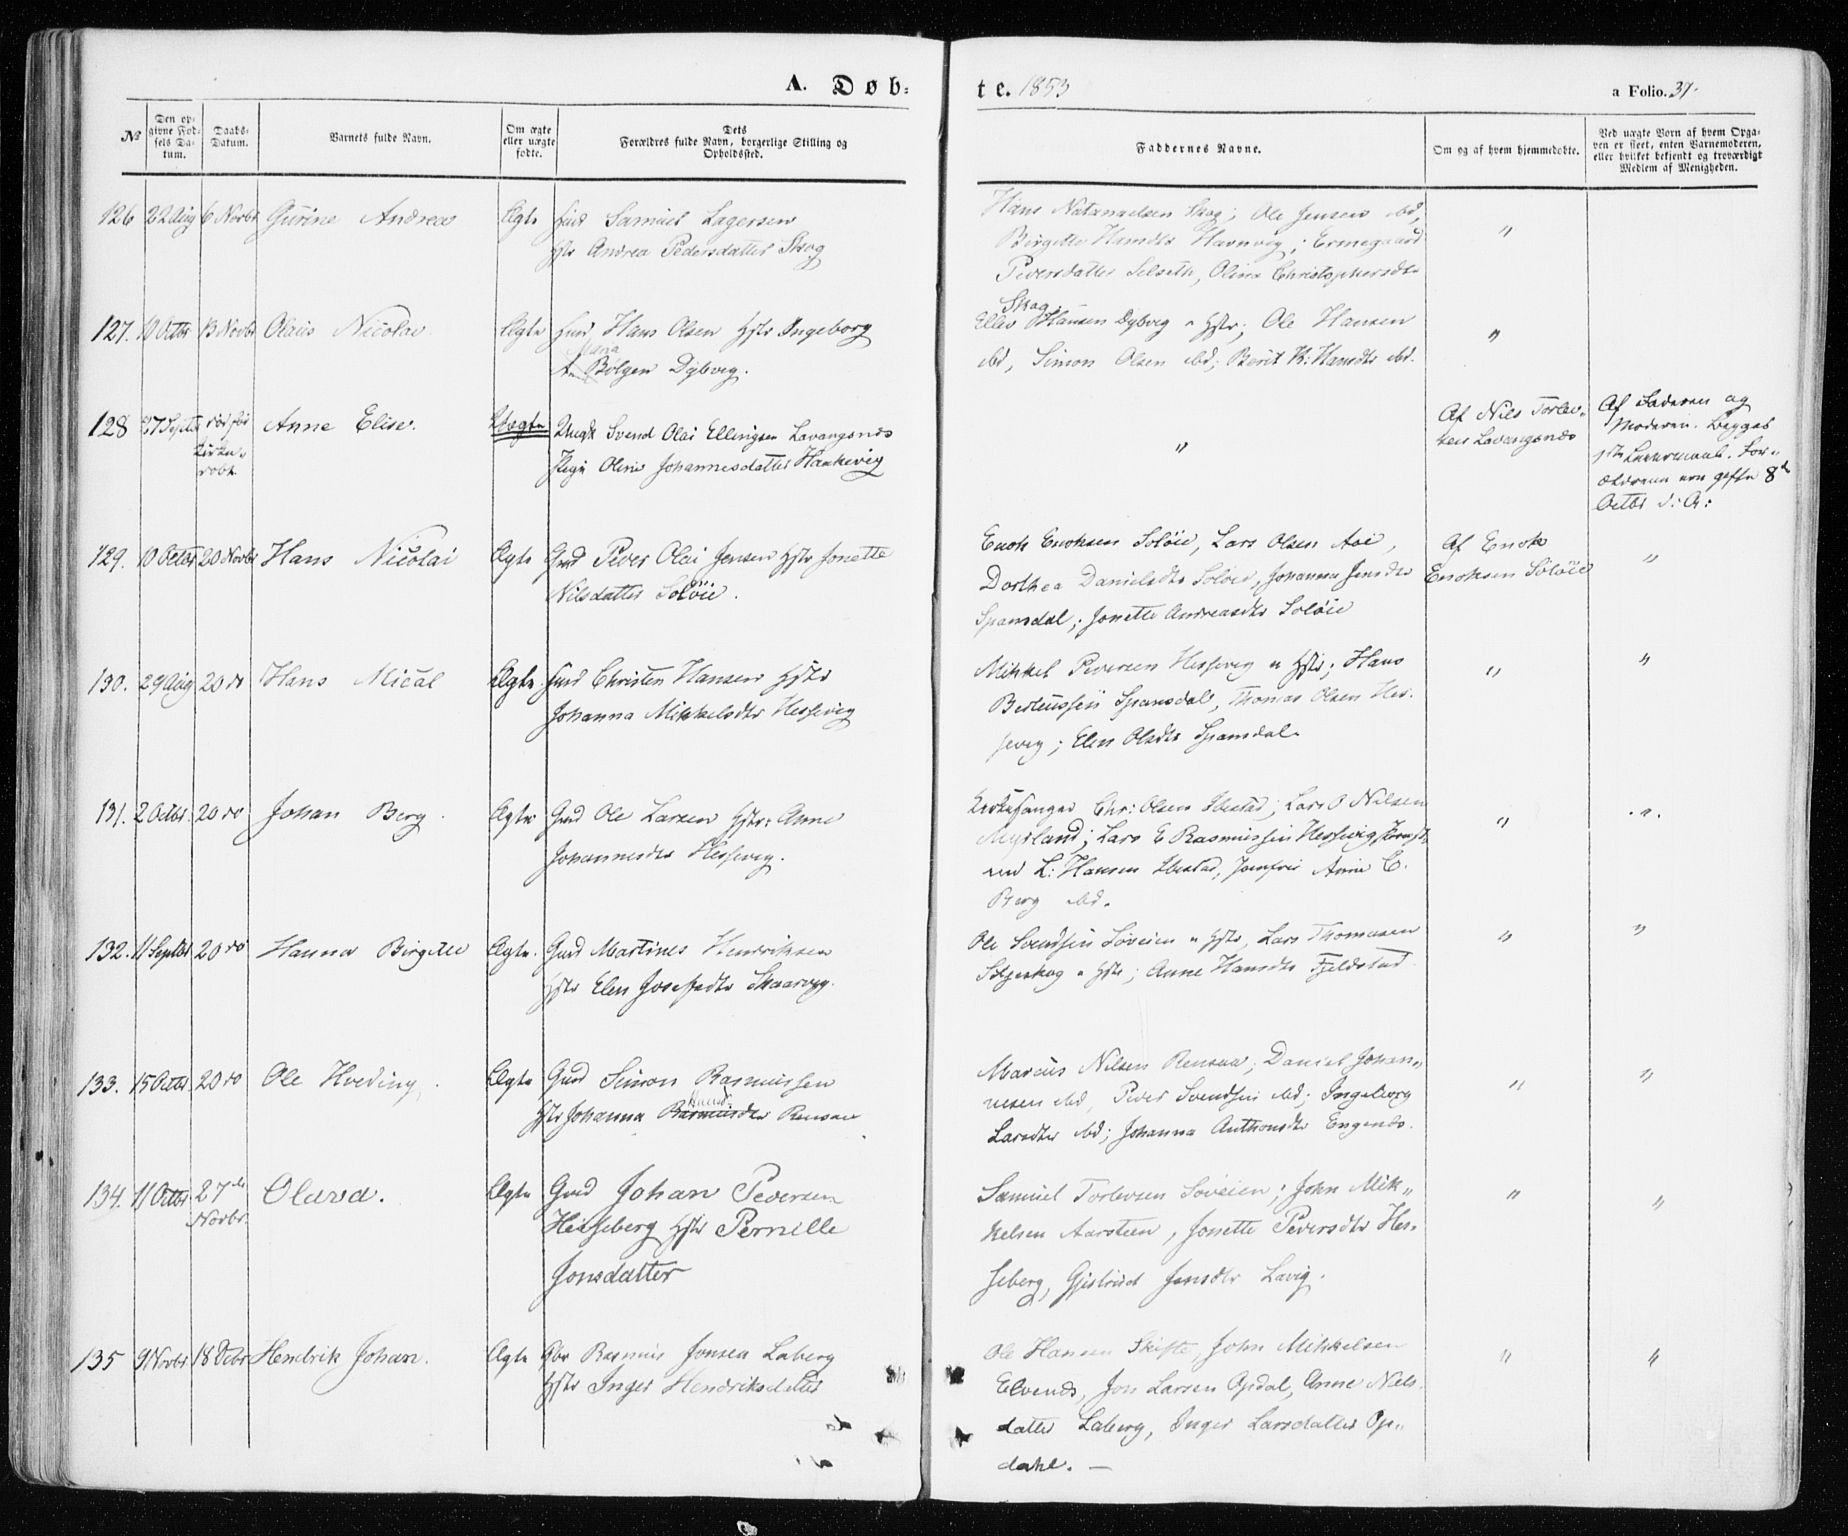 A. Døb-
te. 1853
a Folio. 37.
№
Den op-
givne Fød-
sels Da-
tum.
Daabs-
Datum.
Barnets fulde Navn.
Om ægte
eller uægte
fødte.
Dets
Forældres fulde Navn, borgerlige Stilling og
Opholdssted.
Faddernes Navne.
Om og af hvem hjemmedøbte.
Ved uægte Børn af hvem Opga-
ven er skeet, enten Barnemoderen,
eller hvilket bekjendt og troværdigt
Medlem af Menigheden.
126 22 Aug 6 Novbr Gurine Andrea Ægte Samuel Lagersen
Hstr Andrea Pedersdatter Skog
Hans Natanaelsen Skog; Ole Jensen ibd,
Birgitte Hansdtr Havnvig; Ermegaard
Pedersdatter Selseth, Olina Christophersdtr
Skog.
"
127. 10 Octbr 13 Novbr Olaus Nicolai Ægte Hans Olsen Hstr Ingeborg
Maria
Bølgen Dybvig.
Ellev Hansen Dybvig " Hstr; Ole Hansen
ibd, Simon Olsen ibd; Berit K: Hansdtr ibd.
"
128 27 Septbr død før
kirke-
døbt
Anne Elise. Uægte Ungk Svend Olai Ellingsen Lavangsnes
Pige Oline Johannesdatter Haukevig
"
Af Nils Torlev-
sen Lavangsnes
Af Faderen og
Moderen. Begges
1ste Leiermaal. For-
ældrene ere gifte 8de
Octbr d: A:
129. 10 Octbr 20 Novbr Hans Nicolai Ægte Gmd Peder Olai Jensen Hstr Jonette
Nilsdatter Soløie.
Enok Enoksen Soløie, Lars Olsen Aae,
Dorthea Danielsdtr Soløie, Johanna Jensdtr
Spansdal; Jonette Andreasdtr Soløie
Af Enok
Enoksen Soløie
"
130. 29 Aug 20 do Hans Mical Ægte Christen Hansen Hstr
Johanna Mikkelsdtr Hessevig
Mikkel Pedersen Hessevig " Hstr; Hans
Berteussen Spansdal, Thomas Olsen Hes-
sevig; Elen Olsdtr Spansdal.
" "
131. 2 Octbr 20 do Johan Berg. Ægte Gmd Ole Larsen Hstr: Anne
Johannesdtr Hessevig.
Kirkesanger Chr: Olsen Ibestad; Lars O Nilsen
Myrland; Lars E Rasmussen Hessevig,
L: Hansen Ibestad, Jomfru Anne C.
Berg ibd.
" "
132. 11 Septbr 20 do Hanna Birgitte Ægte. Gmd Martines Henriksen
Hstr Elen Josefsdtr Skaarvg.
Ole Svendsen Søveien " Hstr, Lars Thomasen
" Hstr; Anne Hansdtr Fjeldstad
" "
133. 15 Octbr 20 do Ole Hveding. Ægte Gmd Simon Rasmussen
Hstr Johanna Rasmusdtr Rensaa
Marcus Nilsen Rensaa; Daniel Johan-
nesen ibd, Peder Svendsen ibd; Ingeborg
Larsdtr ibd; Johanna Anthonsdtr Engenes.
" "
134. 11 Octbr 27de
Novbr.
Olava. Ægte Gmd Johan Pedersen
Hesseberg Hstr Pernille
Jonsdatter
Samuel Torlevsen Søveien; John Mik-
kelsen Aarsteen, Jonette Pedersdtr Hes-
seberg, Gjertrud Jensdtr Lavig.
" "
135 9 Novbr 18 Debr Hendrik Johan. Ægte Rasmus Jonsen Laberg
Hstr Inger Hendriksdatter
Ole Hansen Skifte, John Mikkelsen
Elvenes, Jon Larsen Opdal, Anne Niels-
datter Laberg, Inger Larsdatter Op-
dahl. —
" "